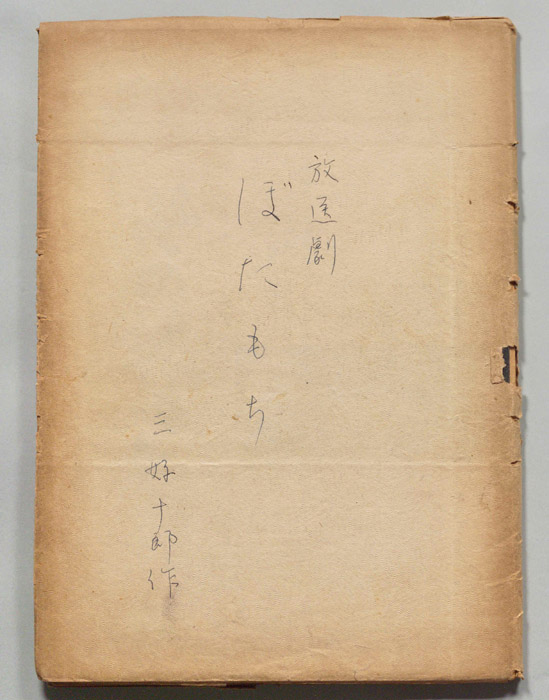 放送劇
ぼたもち
三好十郎作